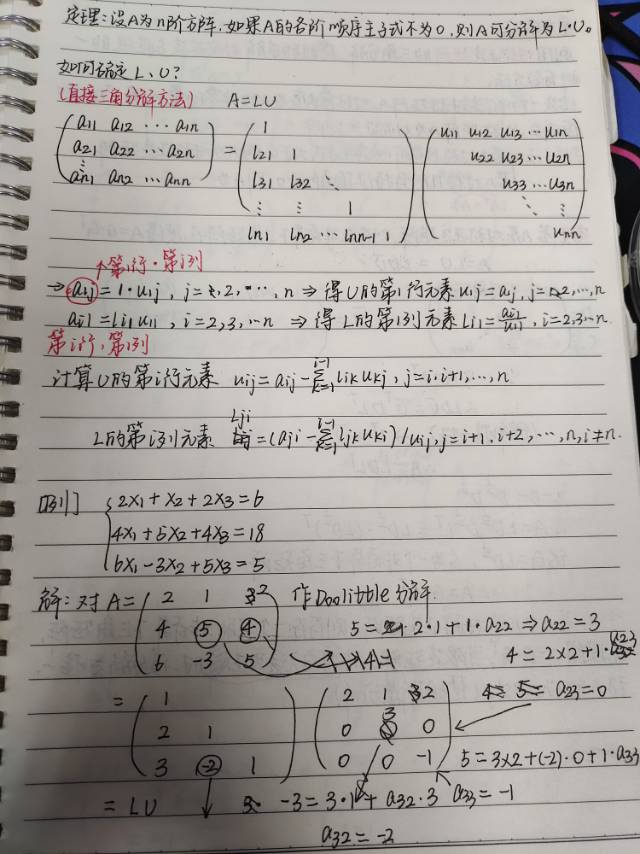 定理:设A为n阶方阵,如果A的各阶顺序主子式不为0,则A可分解为L·U。
如何确定L、U?
(直接三角分解方法) A=LU
(a11 a12 ⋯ a1n
a21 a22 ⋯ a2n
⋮
an1 an2 ⋯ ann)
=
(1
l21 1
l31 l32 ⋱
⋮ ⋮ 1
ln1 ln2 ⋯ lnn-1 1)
(u11 u12 u13 ⋯ u1n
u22 u23 ⋯ u2n
u33 ⋯ u3n
⋱ ⋮
unn)
第1行·第j列
⇒ a1j=1·u1j, j=1,2,⋯,n ⇒ 得U的第1行元素u1j=a1j, j=1,2,⋯,n
ai1=li1u11, i=2,3,⋯n ⇒ 得L的第1列元素li1=ai1/u11, i=2,3⋯n
第i行,第1列
计算U的第i行元素 uij=aij-∑(k=1,i-1)likukj, j=i,i+1,⋯,n
L的第i列元素 Lji=(aji-∑(k=1,i-1)ljkuki)/uij, j=i+1,i+2,⋯,n, i≠n.
[例] {2x1+x2+2x3=6
4x1+5x2+4x3=18
6x1-3x2+5x3=5
解:对A=(2 1 2
4 5 4
6 -3 5) 作Doolittle分解
5=2·1+1·a22 ⇒ a22=3
4=2×2+1·a23
a23=0
=(1
2 1
3 -2 1)
(2 1 2
0 3 0
0 0 -1)
5=3×2+(-2)·0+1·a33
a33=-1
=LU
-3=3·1+a32·3
a32=-2